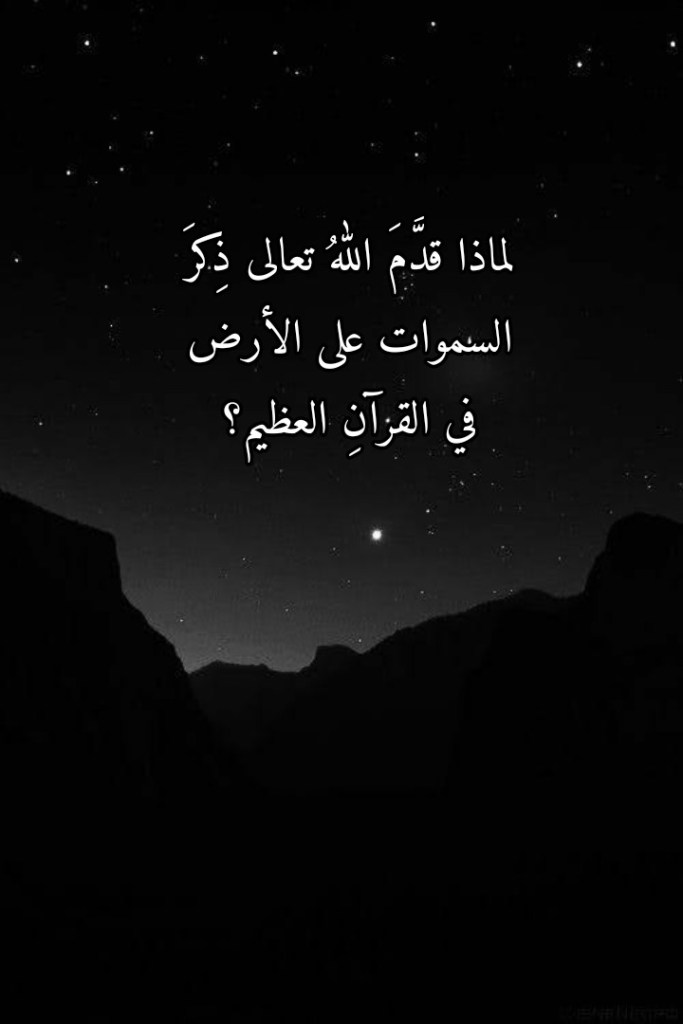 لماذا قدَّمَ اللهُ تعالى ذِكرَ
السموات على الأرض
في القرآنِ العظيم؟